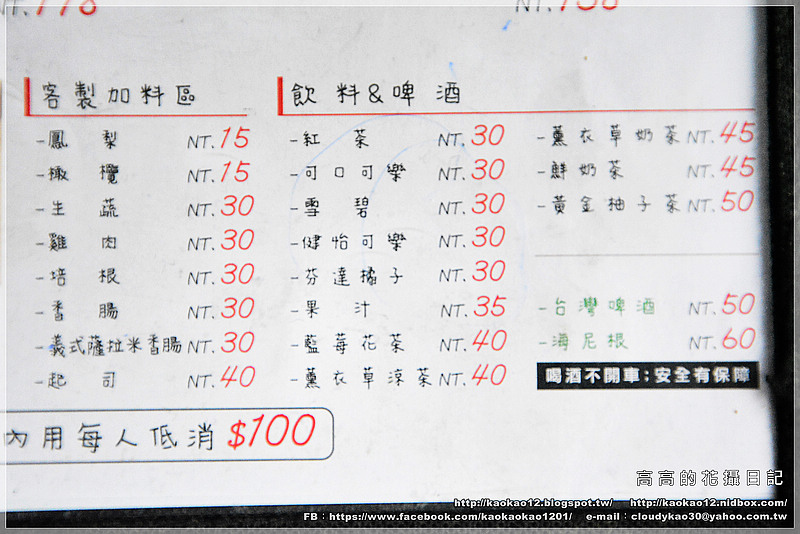 NT.778
NT.738
客製加料區
-鳳 梨 NT.15
-橄 欖 NT.15
-生 蔬 NT.30
-雞 肉 NT.30
-培 根 NT.30
-香 腸 NT.30
-義式薩拉米香腸 NT.30
-起 司 NT.40
飲 料&啤 酒
-紅 茶 NT.30
-可口可樂 NT.30
-雪 碧 NT.30
-健怡可樂 NT.30
-芬達橘子 NT.30
-果 汁 NT.35
-藍莓花茶 NT.40
-薰衣草涼茶 NT.40
-薰衣草奶茶 NT.45
-鮮奶茶 NT.45
-黃金柚子茶 NT.50
-台灣啤酒 NT.50
-海尼根 NT.60
喝酒不開車;安全有保障
內用每人低消 $100
高高的花攝日記
http://kaokao12.blogspot.tw/ http://kaokao12.nidbox.com/
FB:https://www.facebook.com/kaokaokao1201/ e-mail:cloudykao30@yahoo.com.tw